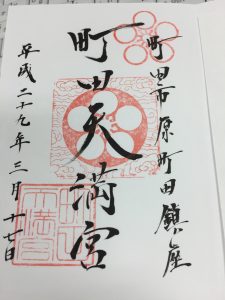 町田市原町田鎮座
町田天満宮
平成二十九年三月十七日